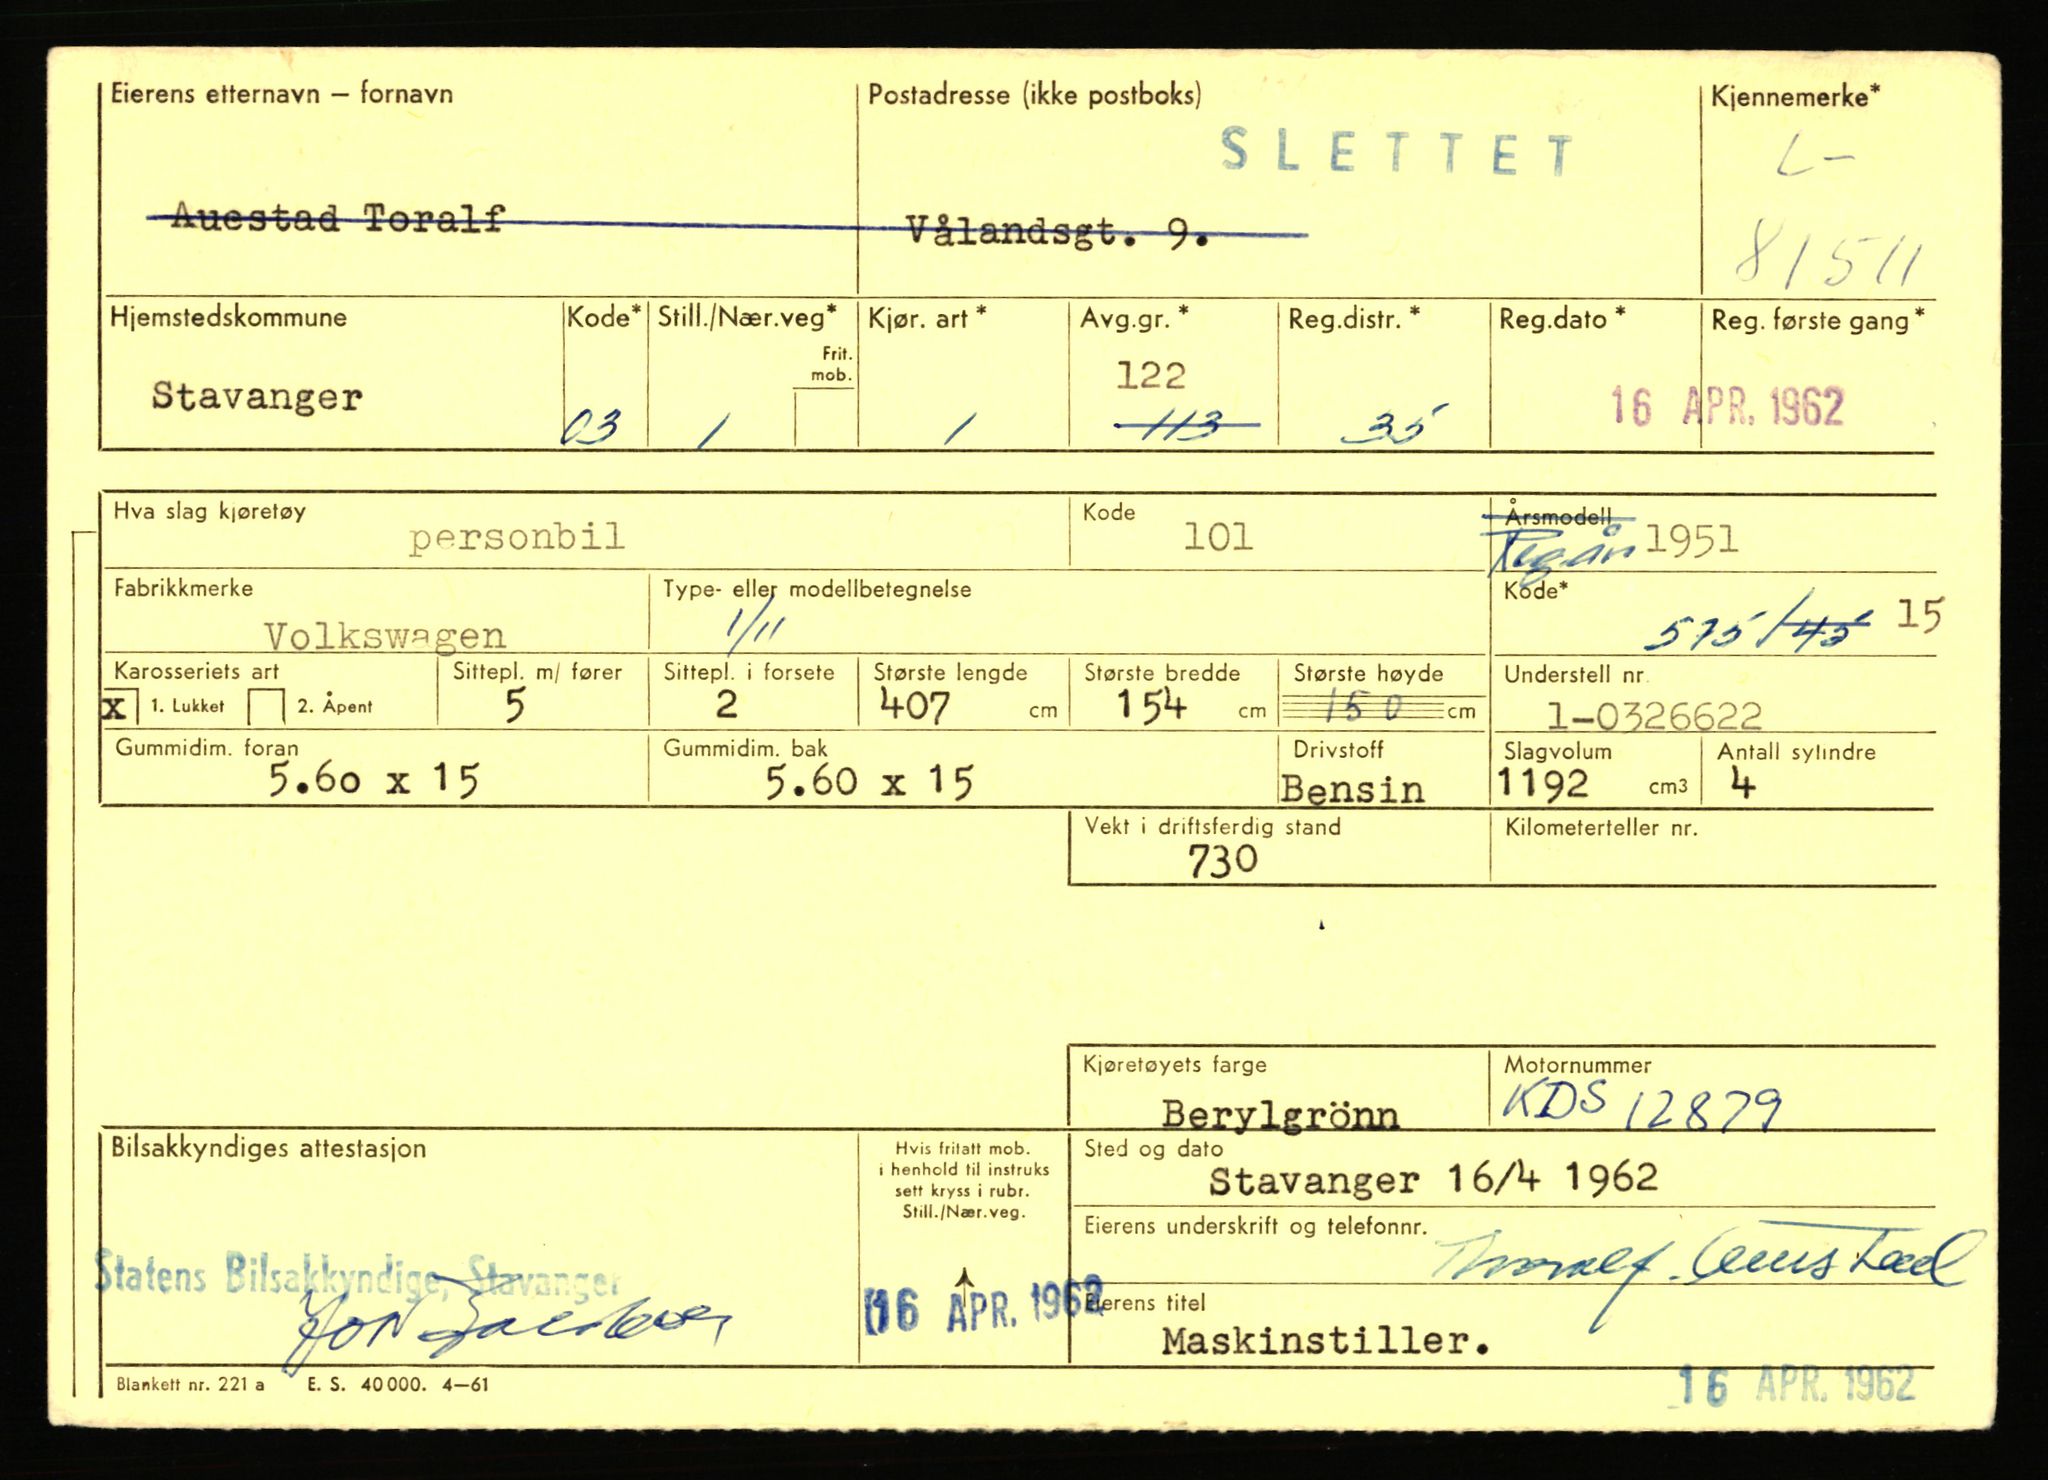 Eierens etternavn – fornavn
Postadresse (ikke postboks)
Kjennemerke*
SLETTET
L-
Auestad Toralf
Vålandsgt. 9.
81511
Hjemstedskommune
Kode*
Still./Nær.veg*
Kjør. art*
Avg.gr.*
Reg.distr.*
Reg.dato*
Reg. første gang*
Frit.
mob.
122
Stavanger
03
1
1
113
35
16 APR. 1962
Hva slag kjøretøy
personbil
Kode
101
Årsmodell
Regår 1951
Fabrikkmerke
Volkswagen
Type- eller modellbetegnelse
1/11
Kode*
575/45 15
Karosseriets art
x 1. Lukket 2. Åpent
Sittepl. m/ fører
5
Sittepl. i forsete
2
Største lengde
407 cm
Største bredde
154 cm
Største høyde
150 cm
Understell nr.
1-0326622
Gummidim. foran
5.60 x 15
Gummidim. bak
5.60 x 15
Drivstoff
Bensin
Slagvolum
1192 cm3
Antall sylindre
4
Vekt i driftsferdig stand
730
Kilometerteller nr.
Kjøretøyets farge
Berylgrönn
Motornummer
KDS 12879
Bilsakkyndiges attestasjon
Hvis fritatt mob.
i henhold til instruks
sett kryss i rubr.
Still./Nær.veg.
Sted og dato
Stavanger 16/4 1962
Eierens underskrift og telefonnr.
Thoralf Auestad
Statens Bilsakkyndige, Stavanger
16 APR. 1962
Eierens titel
Maskinstiller.
Blankett nr. 221 a E. S. 40 000. 4–61
16 APR. 1962